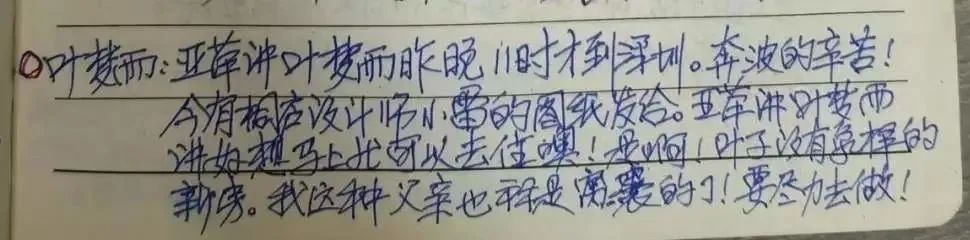 叶梦而:亚萍讲叶梦而昨晚11时才到深圳。奔波的辛苦!
今有相店设计师小曾的图纸发给。亚萍讲叶梦而
讲好想马上就可以去住噢!是啊!叶子没有象样的
新房。我这种父亲也称是窝囊的了!要尽力去做!